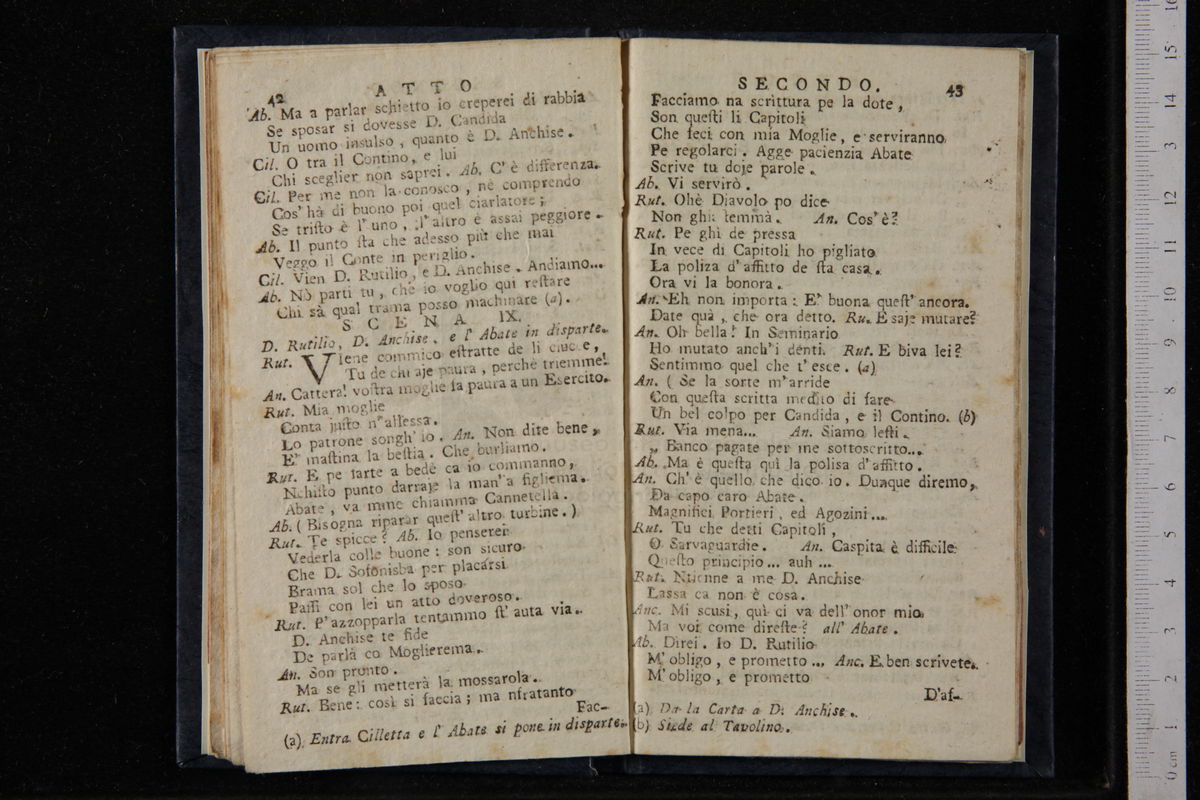 42 ATTO
Ab. Ma a parlar schietto io creperei di rabbia
Se sposar si dovesse D. Candida
Un uomo insulso, quanto è D. Anchise.
Cil. O tra il Contino, e lui
Chi sceglier non saprei. Ab. C'è differenza.
Cil. Per me non la conosco, nè comprendo
Cos' hà di buono poi quel ciarlatore;
Se tristo è l'uno, l'altro è assai peggiore.
Ab. Il punto sta che adesso più che mai
Veggo il Conte in periglio.
Cil. Vien D. Rutilio, e D. Anchise. Andiamo...
Ab. Nò parti tu, chè io voglio qui restare
Chi sà qual trama posso machinare (a).
SCENA IX.
D. Rutilio, D. Anchise, e l'Abate in disparte.
Rut. Viene commico estratte de li ciucce,
Tu de chi aje paura, perchè triemme?
An. Cattera! vostra moglie fa paura a un Esercito.
Rut. Mia moglie
Conta justo n'allessa.
Lo patrone songh' io. An. Non dite bene,
E' mastina la bestia. Che burliamo.
Rut. E pe farte a bedè ca io commanno,
Nchisto punto darraje la man'a figliema.
Abate, va mme chiamma Cannetella.
Ab. (Bisogna riparar quest' altro turbine.)
Rut. Te spicce? Ab. Io penserei
Vederla colle buone: son sicuro
Che D. Sofonisba per placarsi
Brama sol che lo sposo
Passi con lei un atto doveroso.
Rut. P'azzopparla tentammo st' auta via.
D. Anchise te fide
De parlà co Moglierema.
An. Son pronto.
Ma se gli metterà la mossarola.
Rut. Bene: così si faccia; ma nfratanto
Fac-
(a) Entra Cilletta e l'Abate si pone in disparte.
SECONDO. 43
Facciamo na scrittura pe la dote,
Son questi li Capitoli
Che feci con mia Moglie, e serviranno
Pe regolarci. Agge pacienzia Abate
Scrive tu doje parole.
Ab. Vi servirò.
Rut. Ohè Diavolo po dice
Non ghì temma. An. Cos'è?
Rut. Pe ghì de pressa
In vece di Capitoli ho pigliato
La poliza d'affitto de sta casa.
Ora vi la bonora.
An. Eh non importa: E' buona quest' ancora.
Date quà, che ora detto. Ru. E saje mutare?
An. Oh bella! In Seminario
Ho mutato anch'i denti. Rut. E biva lei?
Sentimmo quel che t'esce. (a)
An. (Se la sorte m'arride
Con questa scritta medito di fare
Un bel colpo per Candida, e il Contino. (b)
Rut. Via mena... An. Siamo lesti.
„ Banco pagate per me sottoscritto...
Ab. Ma è questa quì la polisa d'affitto.
An. Ch'è quello che dico io. Dunque diremo,
Da capo caro Abate.
Magnifici Portieri, ed Agozini...
Rut. Tu che detti Capitoli,
O Sarvaguardie. An. Caspita è difficile
Questo principio... auh...
Rut. Ntienne a me D. Anchise
Lassa ca non è cosa.
Anc. Mi scusi, quì ci va dell'onor mio,
Ma voi come direste? all' Abate.
Ab. Direi. Io D. Rutilio
M'obligo, e prometto... Anc. E ben scrivete.
M'obligo, e prometto
D'af-
(a) Da la Carta a D. Anchise.
(b) Siede al Tavolino.